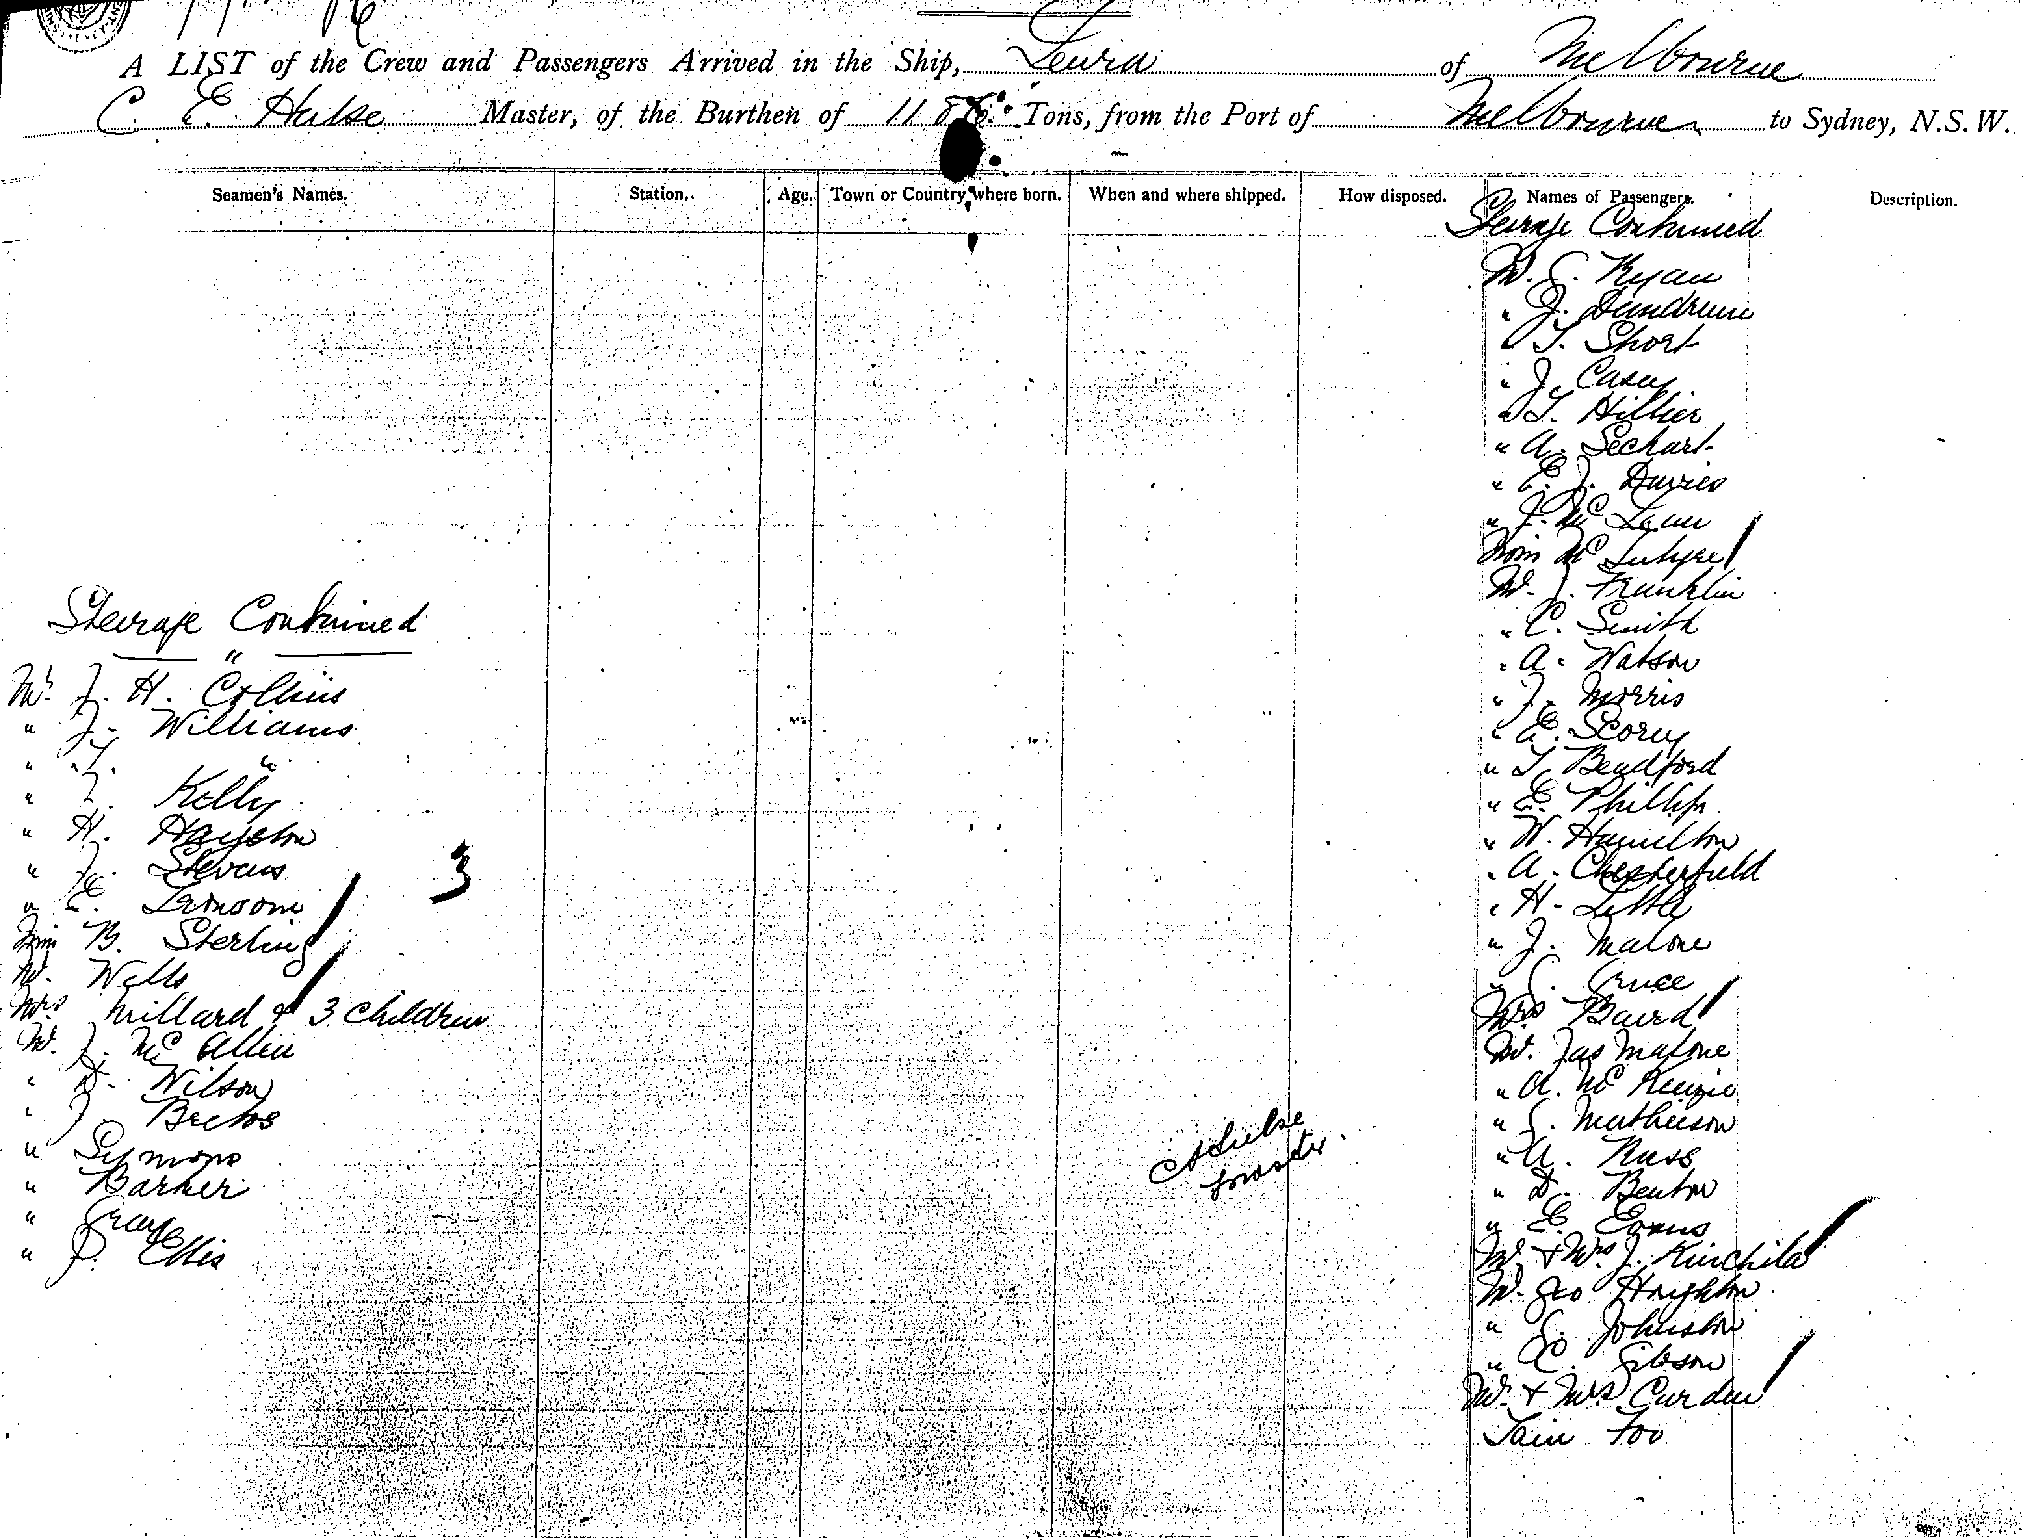 A LIST of the Crew and Passengers Arrived in the Ship, of Melbourne
C. E. Hulse Master, of the Burthen of Tons, from the Port of Melbourne to Sydney, N.S.W.
Seamen's Names. Station. Age. Town or Country where born. When and where shipped. How disposed. Names of Passengers. Description.
Steerage Continued
Mr. J. H. Collins
" J. Williams
" J. "
" J. Kelly
" H. Hayston
" J. Stevens
" E.
Miss B. Sterling
Mr. Wells
Mrs Millard & 3 children
Mr. J. Mc Allen
" Wilson
" J
" Symons
" Barker
" Gray
" J. Ellis
3
C E Hulse
Master.
Steerage Continued
Mr. J. Ryan
" J. Dundrum
" T. Short
" J. Casey
" T. Hillier
" A. Sechart
" E. J. Davies
" J. Mc Lean
Miss Mc Intyre
Mr. J. Franklin
" C. Smith
" A. Watson
" J. Morris
" E. Scorey
" T. Bendford
" E. Phillips
" W. Hamilton
" A. Chesterfield
" H. Little
" J. Malone
" Gruce
Mrs Baird
Mr. Jas Malone
" A. Mc Kenzie
" J. Mathieson
" A. Russ
" D. Benton
" E. Evans
Mr. & Mrs. J. Kinchila
Mr. Geo Houghton
" Johnston
" C. Gibson
Mr. & Mrs Curden
Tain Foo